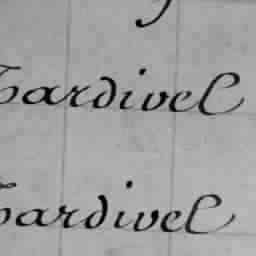 Tardivel
Tardivel